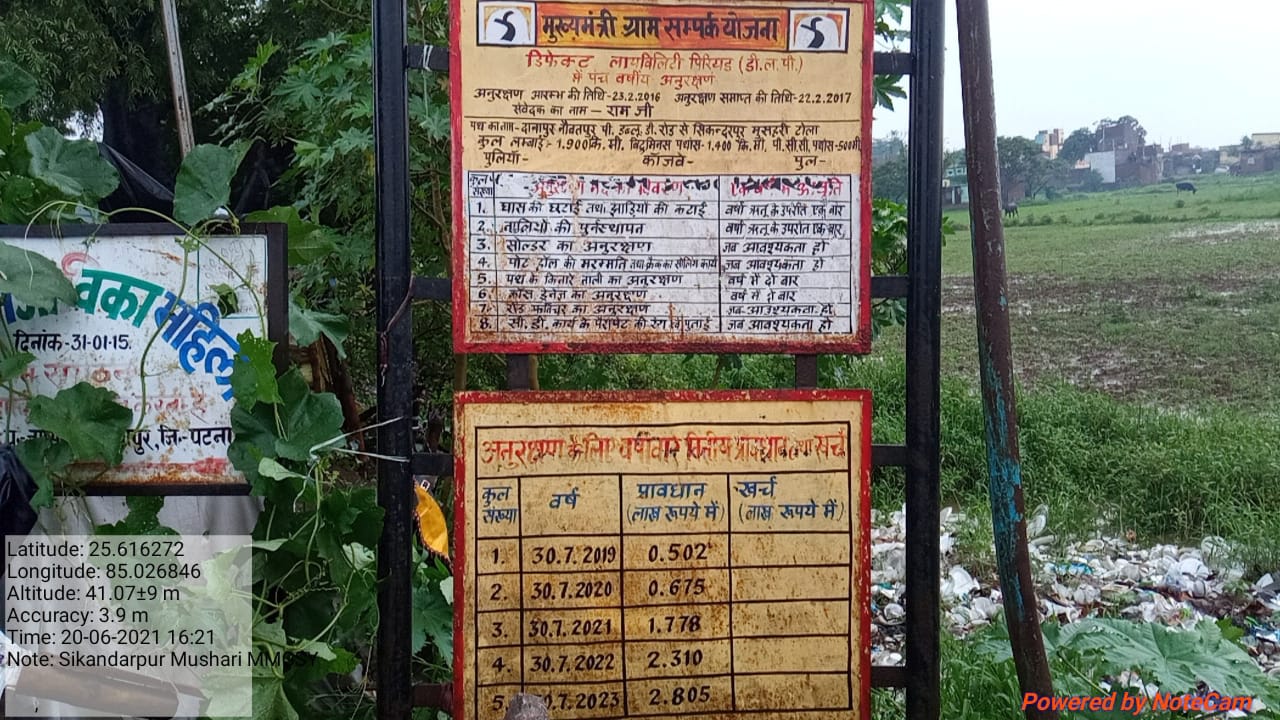 मुख्यमंत्री ग्राम सम्पर्क योजना
डिफेक्ट लायविलिटी पिरियड (डी.ल.पी.)
में पंच वर्षीय अनुरक्षण
अनुरक्षण आरम्भ की तिथि-23.2.2016 अनुरक्षण समाप्त की तिथि-22.2.2017
संवेदक का नाम - राम जी
पथ का नाम-दानापुर नौवतपुर पी. डब्लू. डी. रोड से सिकन्दरपुर मुसहरी टोला
कुल लम्बाई- 1.900कि.मी. बिटुमिनस पथांस- 1.400 कि.मी. पी.सी.सी. पथांस-500मी
पुलिया- कॉजवे- पुल-
संख्या
1. घास की छटाई तथा झाड़ियों की कटाई वर्षा ऋतू के उपरांत एक बार
2. नालियों की पुर्नस्थापन वर्षा ऋतू के उपरांत एक बार
3. सोल्डर का अनुरक्षण जब आवश्यकता हो
4. पोट होल की मरम्मति तथा क्रैक का सीलिंग कार्य जब आवश्यकता हो
5. पथ के किनारे नाली का अनुरक्षण वर्ष में दो बार
6. क्रॉस ड्रेनेज का अनुरक्षण वर्ष में दो बार
7. रोड फर्निचर का अनुरक्षण जब आवश्यकता हो
8. सी. डी. कार्य के पैरापेट की रंग एवं पुताई जब आवश्यकता हो
महिला
दिनांक-31-01-15.
जि.-पटना
अनुरक्षण के लिए वर्षवार वित्तीय प्रावधान तथा खर्च
कुल संख्या वर्ष प्रावधान (लाख रूपये में) खर्च (लाख रूपये में)
1. 30.7.2019 0.502
2. 30.7.2020 0.675
3. 30.7.2021 1.778
4. 30.7.2022 2.310
5. 0.7.2023 2.805
Latitude: 25.616272
Longitude: 85.026846
Altitude: 41.07±9 m
Accuracy: 3.9 m
Time: 20-06-2021 16:21
Note: Sikandarpur Mushari MMGSY
Powered by NoteCam